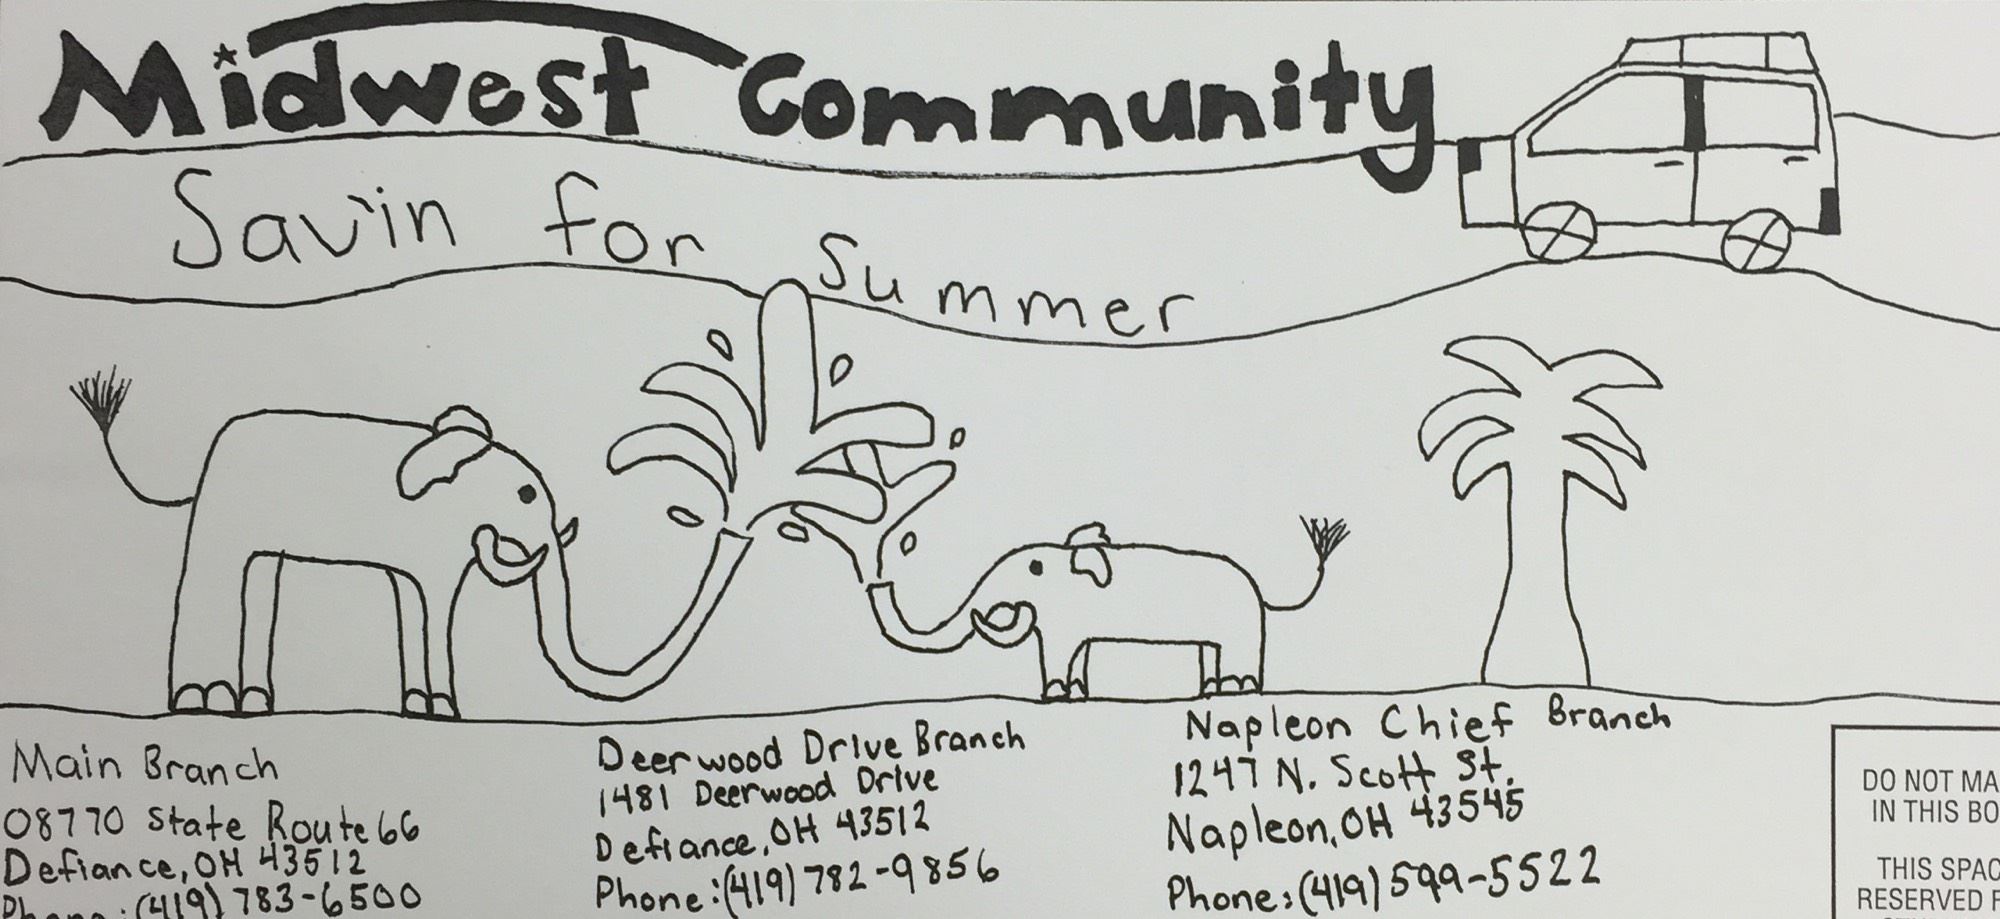 Midwest Community
Sav'in for Summer
Main Branch
08770 State Route 66
Defiance, OH 43512
Phone: (419) 783-6500
Deerwood Drive Branch
1481 Deerwood Drive
Defiance, OH 43512
Phone: (419) 782-9856
Napleon Chief Branch
1247 N. Scott St.
Napleon, OH 43545
Phone: (419) 599-5522
DO NOT MA
IN THIS BO
THIS SPAC
RESERVED F